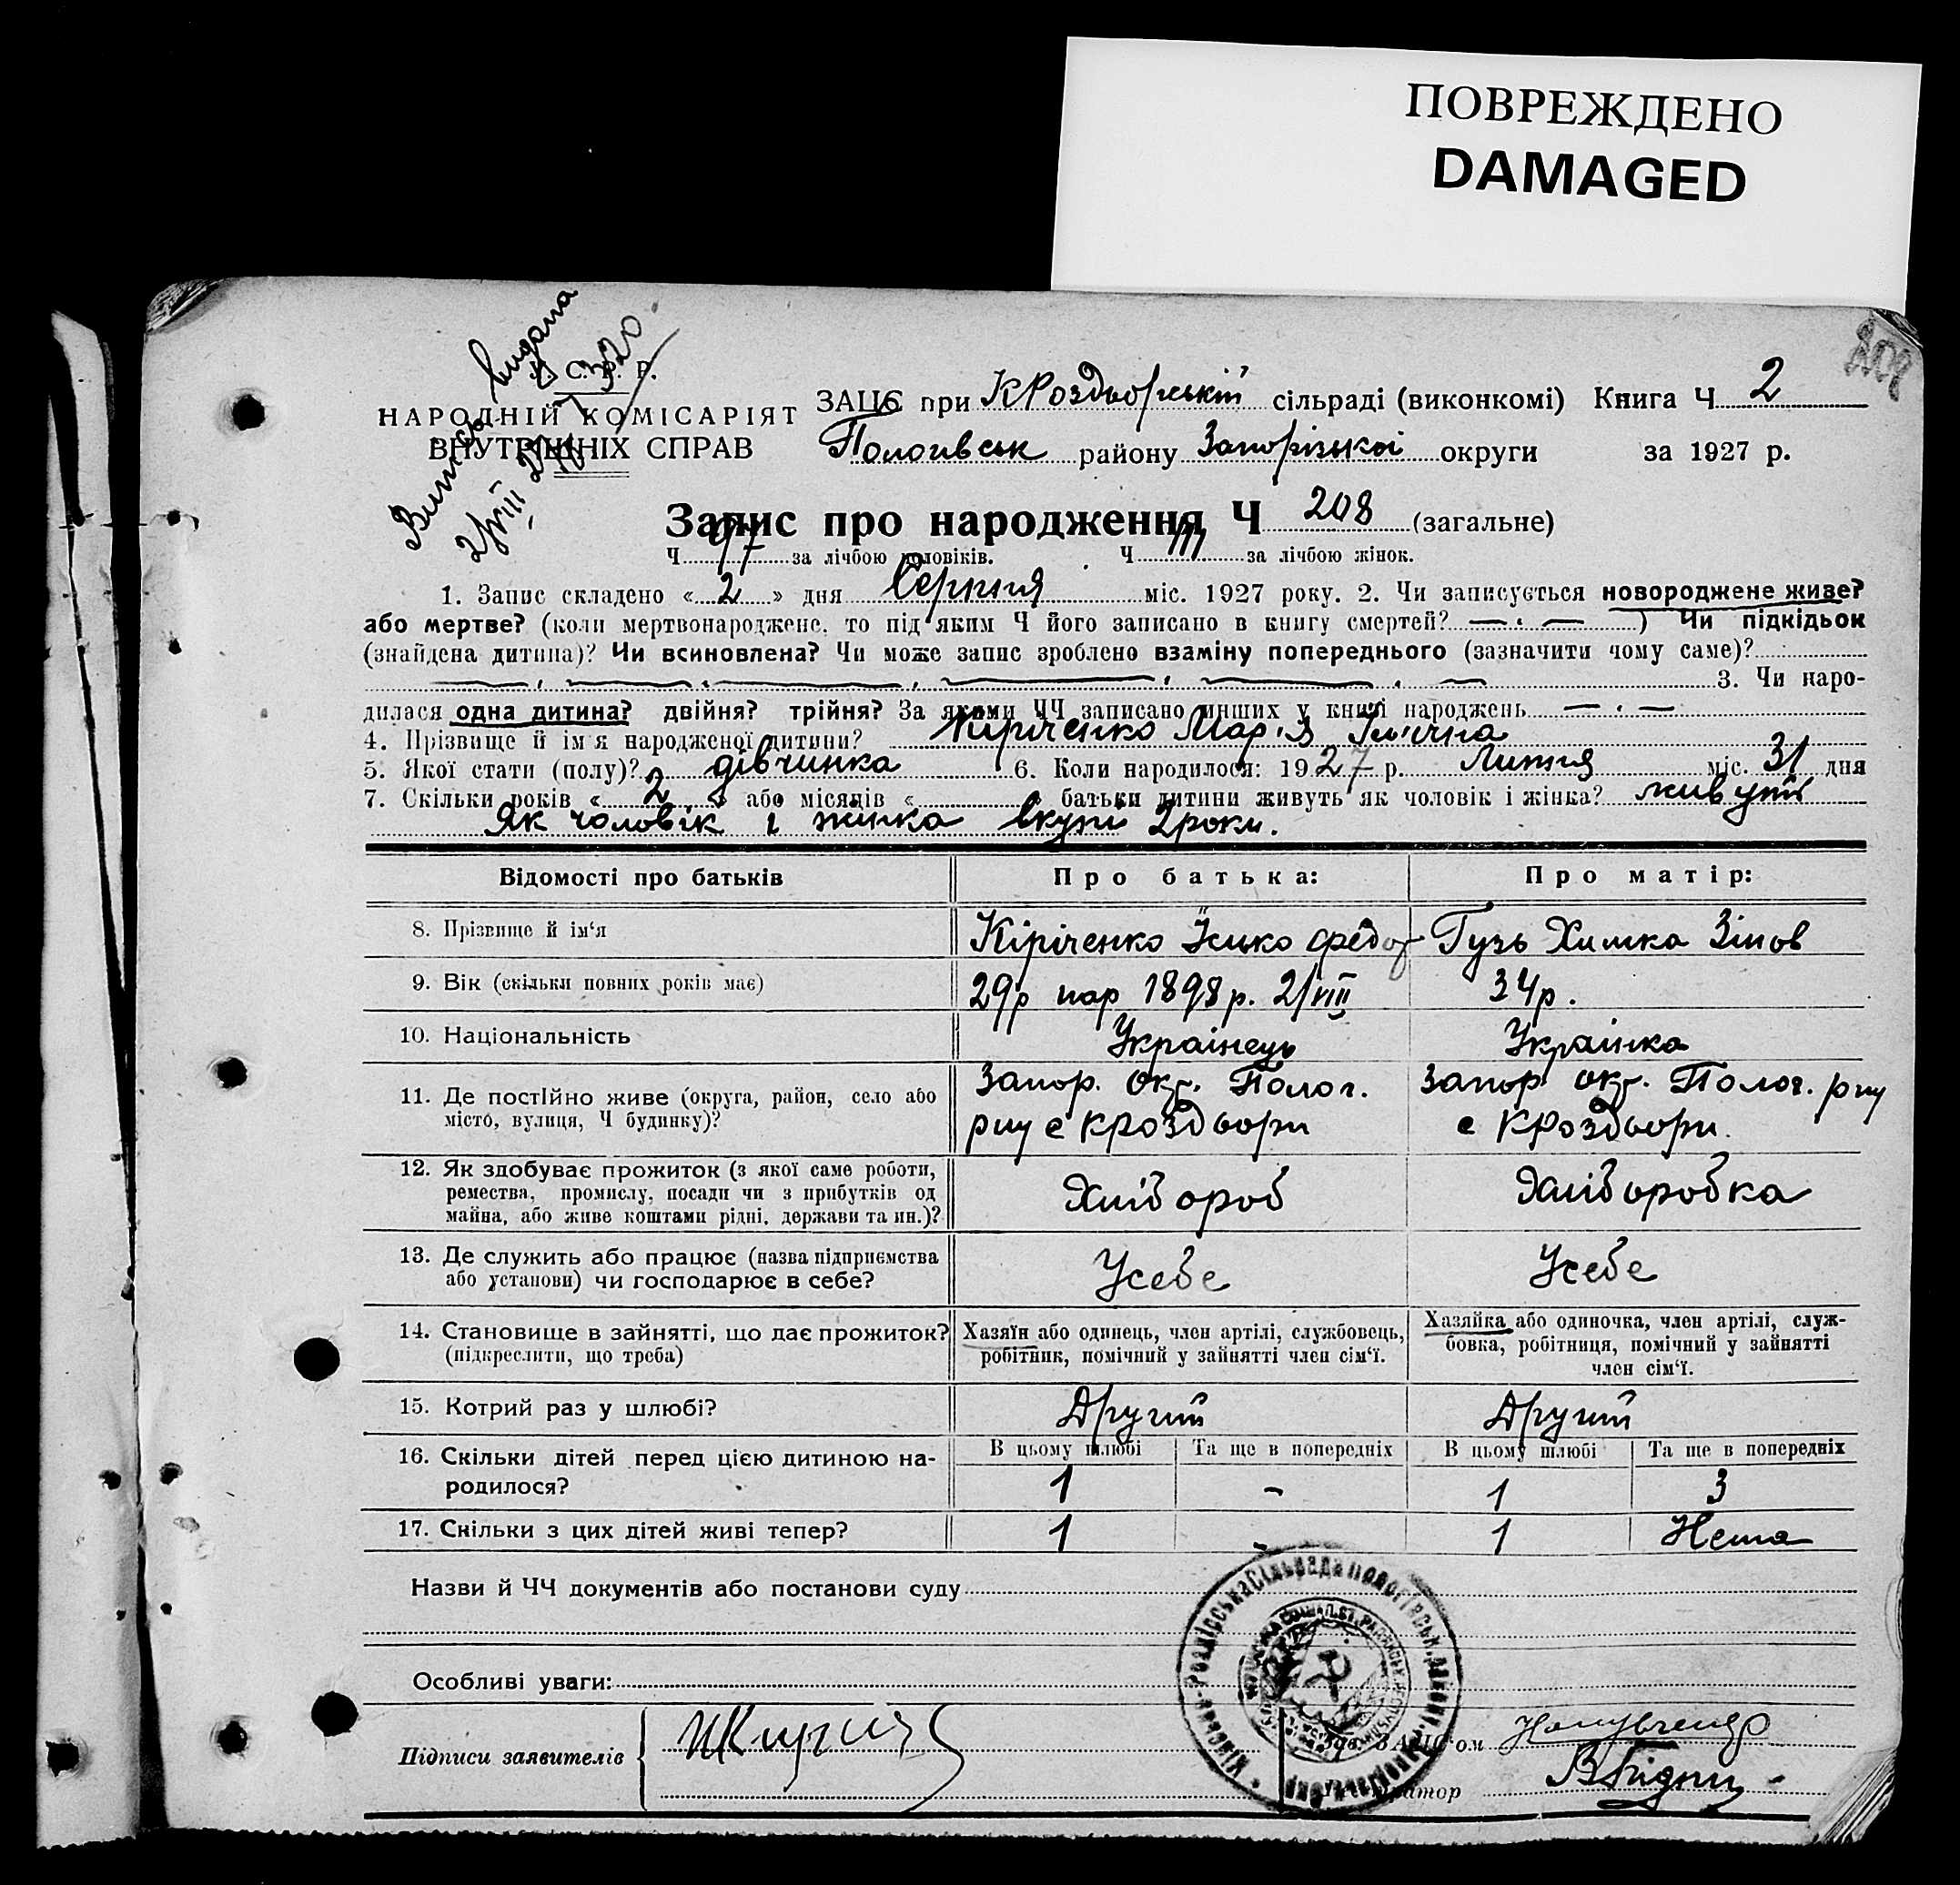 ПОВРЕЖДЕНО
DAMAGED
Випись видана
2/VIII 27 р. 320.
У. С. Р. Р.
НАРОДНІЙ КОМІСАРІЯТ
ВНУТРІШНІХ СПРАВ
ЗАЦС при КРоздорській сільраді (виконкомі) Книга Ч 2
Пологівськ району Запорізької округи за 1927 р.
Запис про народження Ч 208 (загальне)
Ч 97 за лічбою чоловіків. Ч 111 за лічбою жінок.
1. Запис складено «2» дня Серпня міс. 1927 року. 2. Чи записується новороджене живе?
або мертве? (коли мертвонароджене, то під яким Ч його записано в книгу смертей? — . — ) Чи підкідьок
(знайдена дитина)? Чи всиновлена? Чи може запис зроблено взаміну попереднього (зазначити чому саме)?
3. Чи наро-
дилася одна дитина? двійня? трійня? За якими ЧЧ записано инших у книзі народжень — . —
4. Прізвище й ім'я народженої дитини? Кіріченко Марія
5. Якої стати (полу)? дівчинка 6. Коли народилося: 1927 р. Липня міс. 31 дня
7. Скільки років «2» або місяців « » батьки дитини живуть як чоловік і жінка? живуть
Як чоловік і жінка вкупі 2 роки.
Відомості про батьків Про батька: Про матір:
8. Прізвище й ім'я Кіріченко Ісько Федор Гузь Химка Зінов
9. Вік (скільки повних років має) 29 р нар 1898 р. 2/VIII 34 р.
10. Національність Украінець Украінка
11. Де постійно живе (округа, район, село або Запор. окр. Полог. Запор окр. Полог. р-ну
місто, вулиця, Ч будинку)? р-ну с КРоздори с КРоздори.
12. Як здобуває прожиток (з якої саме роботи,
ремества, промислу, посади чи з прибутків од Хлібороб Хліборобка
майна, або живе коштами рідні, держави та ин.)?
13. Де служить або працює (назва підприємства Усебе Усебе
або установи) чи господарює в себе?
14. Становище в зайнятті, що дає прожиток? Хазяїн або одинець, член артілі, службовець, Хазяйка або одиночка, член артілі, служ-
(підкреслити, що треба) робітник, помічний у зайнятті член сім'ї. бовка, робітниця, помічний у зайнятті
член сім'ї.
15. Котрий раз у шлюбі? Другий Другий
16. Скільки дітей перед цією дитиною на- В цьому шлюбі Та ще в попередніх В цьому шлюбі Та ще в попередніх
родилося? 1 - 1 3
17. Скільки з цих дітей живі тепер? 1 - 1 Нема
Назви й ЧЧ документів або постанови суду
Особливі уваги:
Підписи заявителів
Зав. ЗАЦС'ом
Реєстратор